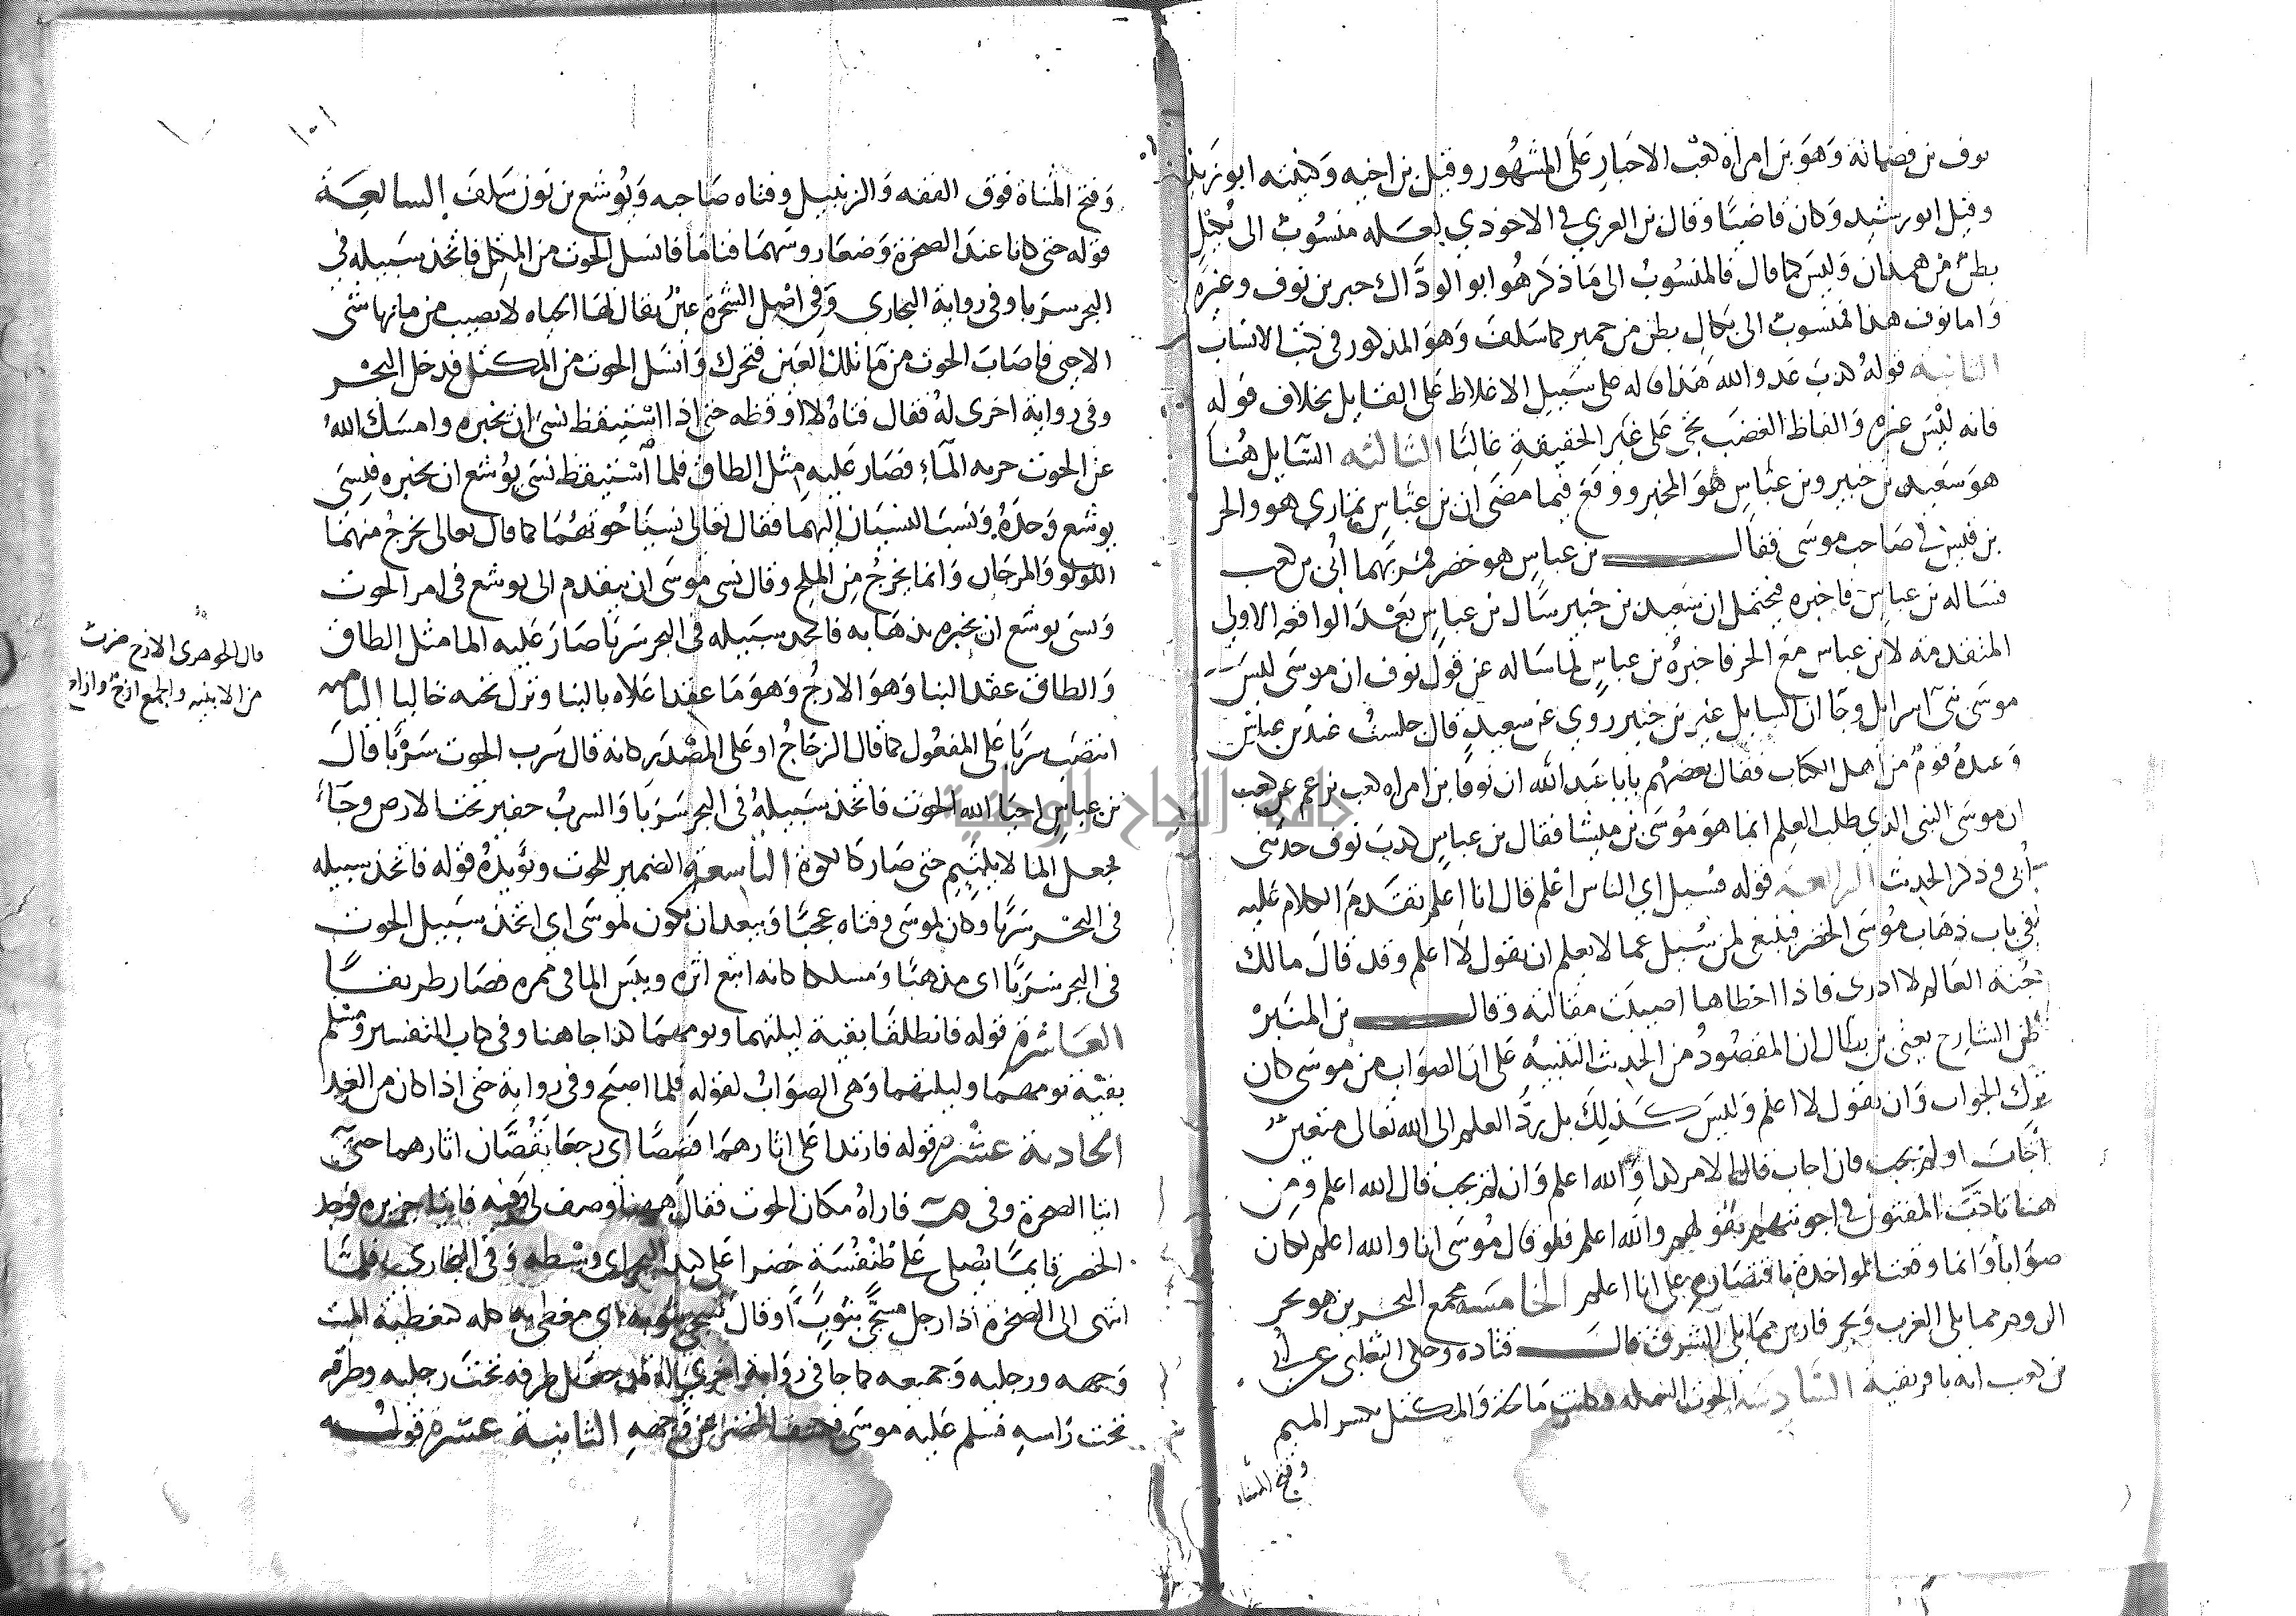 نوف بن فضالة وَهوَ بن امراة كعب الاحبارِ علَى المشهُور وقيل بن اخيه وَكنيته ابو يزيد
وقيل ابو رشيد وَكان قاضيًا وقال بن العربي في الاحوذي لعَله منسُوبٌ الى بُكيل
بطنٌ من همدان وَليسَ كما قال فالمنسُوبُ الى مَا ذكرَ هُو ابو الودَّاك جبر بن نوف وغيرَهُ
وَاما نوف هذا فمنسوبٌ الى بكالِ بطن من حمير كما سَلفَ وَهوَ المذكور في كتب الانسَاب
الثانية قولهُ كذبَ عَدو الله هَذا قاله على سَبيلِ الاغلاط عَلى القايل بخلاف قوله
فانه ليْسَ غيره وَالفاظ الغضبَ تجي عَلى غيْرِ الحقيقةِ غالبًا الثالثه السَّايل هُنا
هوَ سَعيد بن جبير وبن عبَّاسٍ هوَ المخبر ووقعَ فيما مضَى ان بن عبَّاسٍ تمارى هو والحر
بن قيس في صَاحب موسَى فقال بن عباس هو خضر فمر بهما اُبي بن كعب
فسَاله بن عباسٍ فاخبره فيحتمل ان سَعيد بن جبير سَال بن عباسٍ بَعْدَ الواقعه الاولي
المتقدمة لابن عباس معَ الحر فاخبرهُ بن عباسٍ لما سَاله عن قول نوف ان موسَى ليسَ
موسَى بني اسرايل وجَا ان السايل غير بن جبير روي عن سعيدٍ قال جلستُ عندَ بن عباسٍ
وَعنده قومٌ من اهل الكتاب فقال بعضهُم يابا عبَد الله ان نوفًا بن امراه كعب يزعم عن كعب
ان موسَى النبي الذي طلب العلم انما هوَ مُوسَى بن ميشا فقال بن عباسٍ كذبَ نوف حدثني
اُبي وذكر الحديث الرابعة قوله فسُيل اي الناس اعْلم قال انا اعلم تقدمَ الكلام عَليه
في باب ذهَاب مُوسَى الى الخضر فينبغي لمن سُيل عما لا يعلم ان يقول لا اعلم وقد قال مالك
جُنة العَالم لا ادرى فاذا اخطاها اصيبت مقالته وقال بن المنير
ظن الشارح يعني بن بطال ان المقصُودُ من الحديث التنبيهُ عَلى ان الصَواب من مُوسَى كان
ترك الجواب وَان يقول لا اعلم وَليسَ كذلِكَ بل ردُّ العلم الى الله تعَالى متعينٌ
اَجابَ او لم يجب فان اجاب قال الامر كذا وَالله اعلم وَان لم يجب قال الله اعلم وَمِن
هنا تادبَ المفتون في اجوبتهم بقولهم والله اعلم فلو قال مُوسَى انا والله اعلم لكان
صَوابًا وَانما وقعت المواخذة باقتصَاره على انا اعلم الخامسَة مجمع البحرين هو بحر
الروم مما يلي الغرب وَبحر فارس ممَا يلي الشرق قال قتاده وحكى الثعلبي عن اُبي
بن كعب انه بافريقية السَّادسَة الحوت السمكه وكانت مَالحة وَالمكتل بكسر الميم
وفتح المثناه
١٠١
وَفتح المثناة فوق القفه وَالزنبيل وفتاه صَاحبه وَيُوشع بن نون سَلفَ السابعَة
قوله حتى كانا عند الصخرة وَضعَا روسَهمَا فنامَا فانسل الحوت من المكتل فاتخذ سَبيله في
البحر سرَبا وفي رواية البخاري وَفي اصْل الشجرة عيْنٌ يقال لهَا الحياه لا يصيب من مايها شي
الا حيي فاصَابَ الحوت من مَا تلك العَين فتحرك وَانسَل الحوت من المكتل فدخل البحْر
وفى رواية اخرى لهُ فقال فتاهُ لا اوقظه حتى اذا استيقظ نسىَ ان يخبره وامسَك اللهُ
عن الحوت جريه المآء فصَار عَليه مثل الطاق فلما استيقظ نسَى يُوشع ان يخبره فنسِىَ
يوشع وَحدَهُ وَنسبَ النسيَان اليهما فقال تعالى نسيَا حُوتهُمَا كما قال تعالى يخرجُ منهمَا
اللولو وَالمرجَان وَانما يخرجُ منِ الملح وقال نسي موسَى ان يتقدم الى يوشع في امر الحوت
وَنسي يوشع ان يخبره بذهَابه فاتخذ سبَيله في البحر سَربًا صَارَ عَليه الما مثل الطاق
وَالطاق عقد البنا وَهوَ الازجُ وَهوَ مَا عقد اعلاه بالبنا وترك تحته خاليا الثامنه
انتصَبَ سرَبًا عَلى المفعُول كما قال الزجاجُ او عَلى المصْدر كانه قال سَرب الحوت سَرْبًا قال
بن عباسٍ احيا الله الحوت فاتخذ سَبيلهُ في البحر سَرَبًا وَالسربُ حفير تحت الارض وجَاء
فجعل الما لا يلتيم حتى صَار كالكوة التاسعة الضمير للحوت ويُؤيدهُ قوله فاتخذ سبيله
في البحْر سَرَبًا وكان لموسَى وفتاه عجبًا وَيبعد ان يكون لموسَى اي اتخذ سَبيل الحوت
في البحر سَرَبًا اى مذهبًا وَمسلكا كانه اتبعَ اثره ويبَس الما في ممره فصَار طريقًا
العَاشرة قوله فانطلقَا بقية ليلتهما ويومهمَا كذا جا هنا وفى كتاب التفسير ومُسْلم
بقية يومهمَا وليلتهما وَهى الصوَابُ لقوله فلما اصبَح وفي رواية حتى اذا كان من الغد
الحادية عشرة قوله فارتدا عَلى اثارهمَا قصَصًا اى رجعَا يَقُصَّان اثارهما حتى
اتيا الصخرة وفى فاراهُ مكان الحوث فقال ههنا وصف لى فاتيا جزيره فوجد
الخضر قايمًا يصلي عَلى طنفسَةٍ خضرا عَلى كبد البحر اى وسْطه وَفي البخاري فلما
انتهى الى الصخرة اذا رجل مسجًّى بثوب او قال تسجى بثوبه اى مغطى به كله كتغطية الميت
وَجهه ورجليه وَجميعه كما جا في رواية اخرى له قد جعَل طرفه تحت رجليه وطرفه
تحت رَاسهِ فسَلم عَليه موسَى فكشف الخضر عن وجههِ الثانية عشرة قوله
قال الجوهرى الازج ضربٌ
من الابنيه والجمع ازجٌ وازاج
جامعة النجاح الوطنية